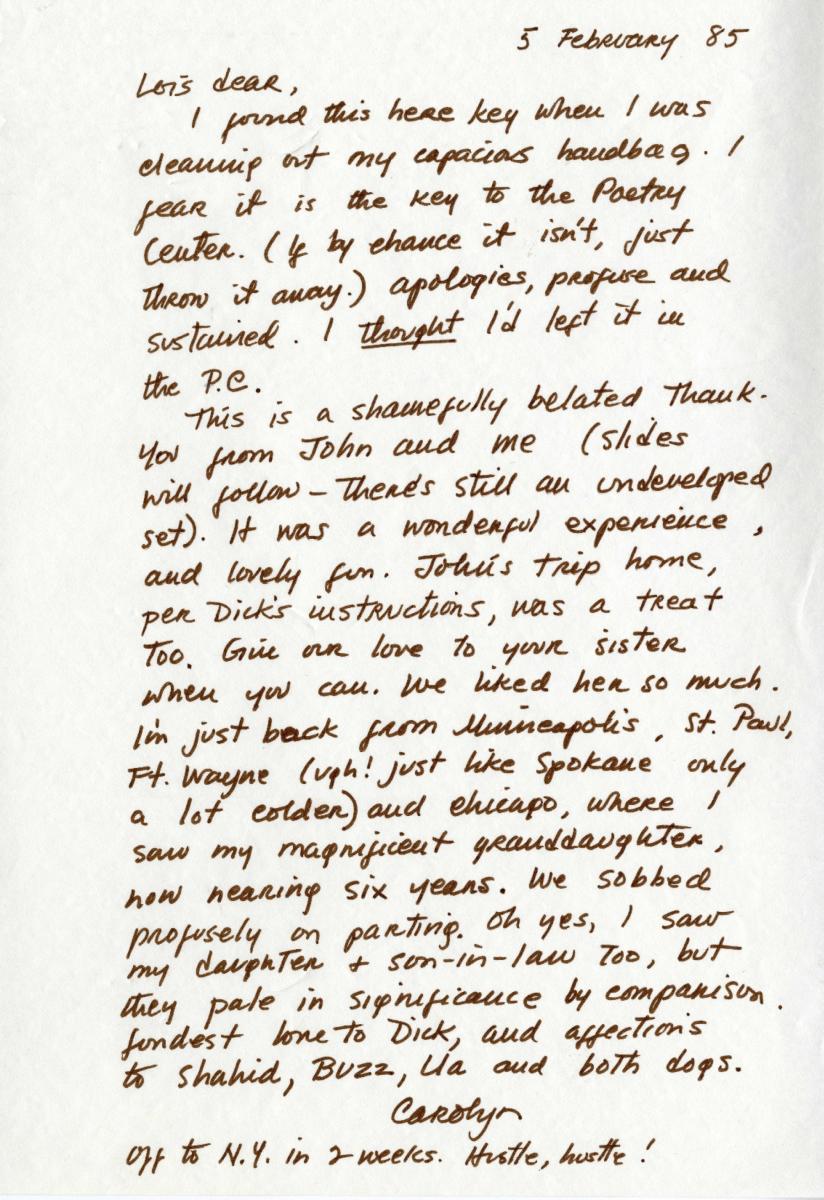 5 February 85
Lois dear,
I found this here key when I was
cleaning out my capacious handbag. I
fear it is the key to the Poetry
Center. (If by chance it isn't, just
throw it away.) apologies, profuse and
sustained. I thought I'd left it in
the P.C.
This is a shamefully belated Thank-
you from John and me (slides
will follow – there's still an undeveloped
set). It was a wonderful experience,
and lovely fun. John's trip home,
per Dick's instructions, was a treat
too. Give our love to your sister
when you can. We liked her so much.
I'm just back from Minneapolis, St. Paul,
Ft. Wayne (ugh! just like Spokane only
a lot colder) and Chicago, where I
saw my magnificent granddaughter,
now nearing six years. We sobbed
profusely on parting. Oh yes, I saw
my daughter + son-in-law too, but
they pale in significance by comparison.
fondest love to Dick, and affections
to Shahid, Buzz, and both dogs.
Carolyn
Off to N.Y. in 2 weeks. Hustle, hustle!